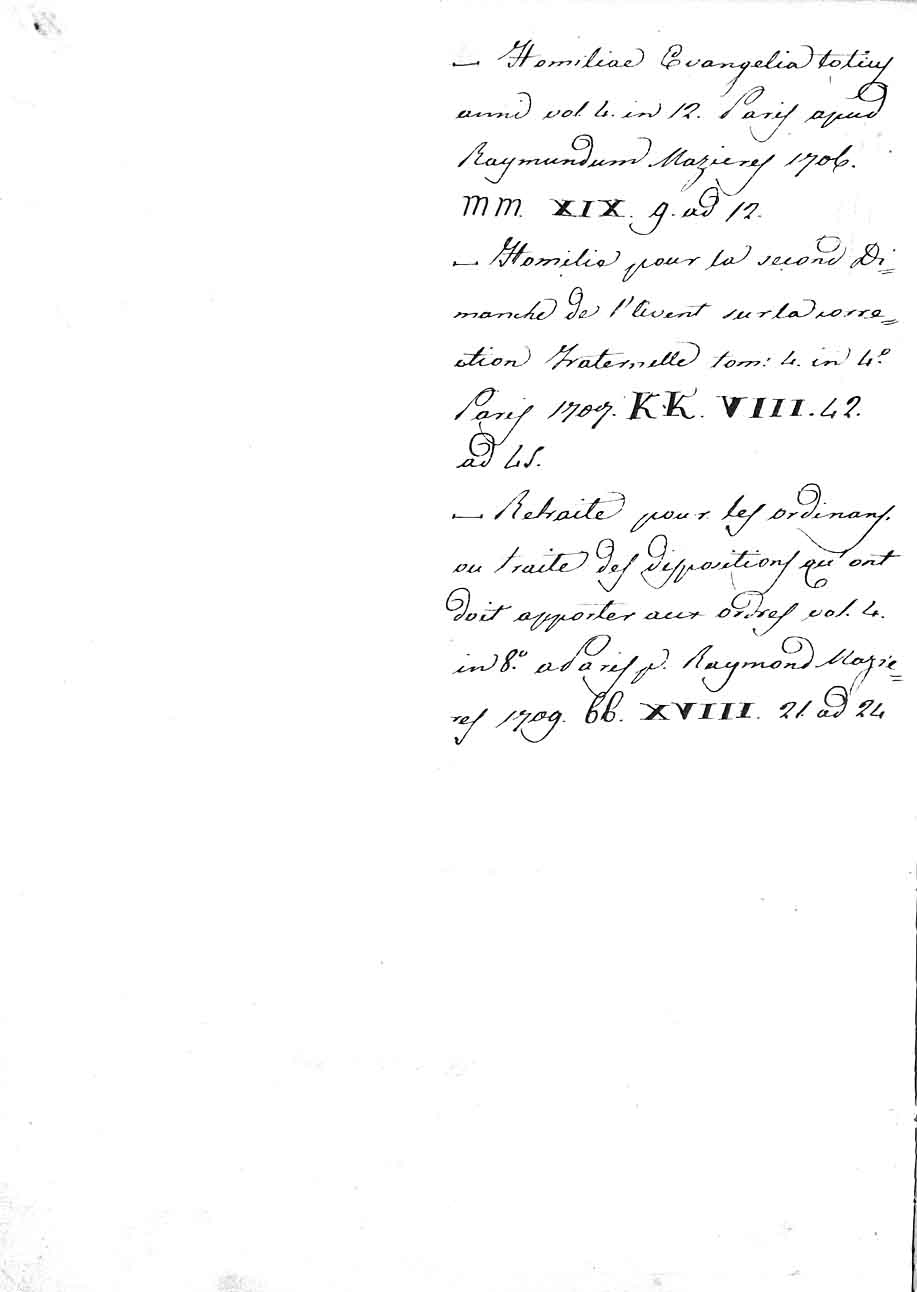 — Homiliae Evangelia totius
anni vol. 4. in 12. Paris apud
Raymundum Mazieres 1706.
mm. XIX. 9. ad 12.
— Homilia pour la second Di=
manche de l'Avent sur la corre=
ction Fraternelle tom: 4. in 4.º
Paris 1707. KK. VIII. 42.
ad 45.
— Retraite pour les ordinans.
ou traite des dispositions qu'ont
doit apporter aux ordres vol. 4.
in 8.º a Paris p. Raymond Mazie=
res 1709. bb. XVIII. 21. ad 24